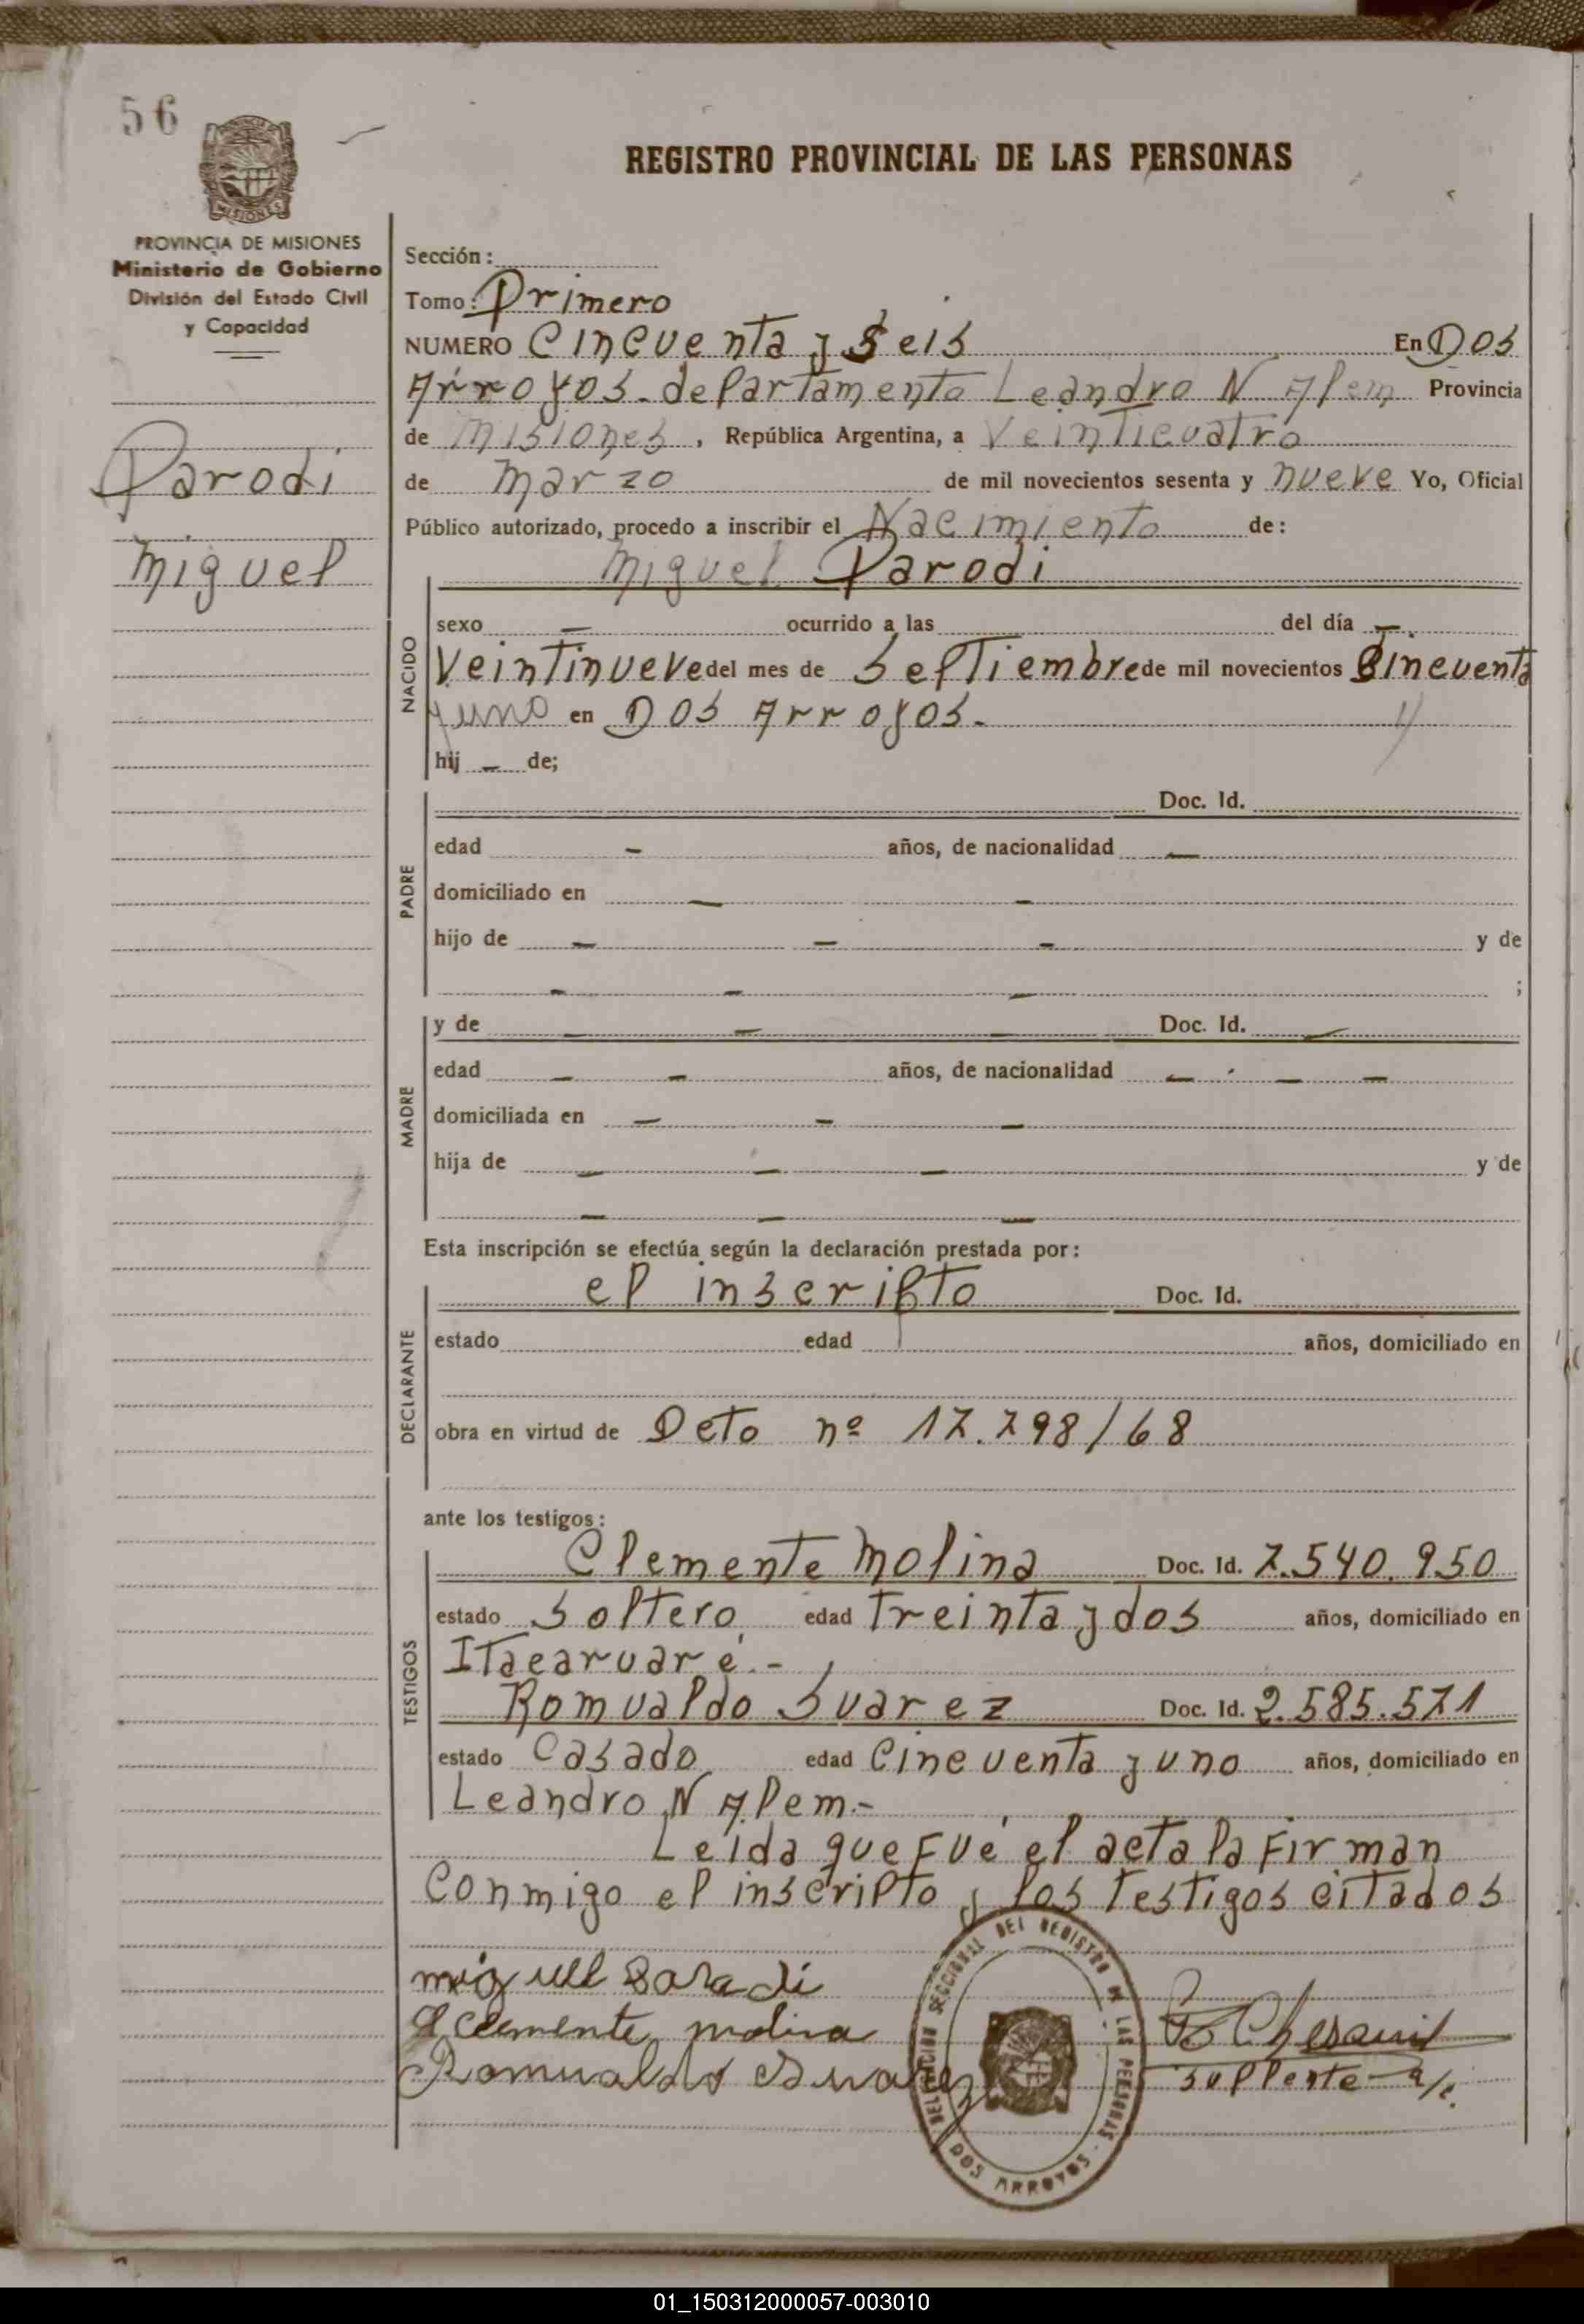 56
PROVINCIA DE MISIONES
Ministerio de Gobierno
División del Estado Civil
y Capacidad
Parodi
Miguel
REGISTRO PROVINCIAL DE LAS PERSONAS
Sección:
Tomo: Primero
NUMERO Cincuenta y Seis En Dos
Arroyos. departamento Leandro N Alem Provincia
de Misiones, República Argentina, a Veinticuatro
de Marzo de mil novecientos sesenta y nueve Yo, Oficial
Público autorizado, procedo a inscribir el Nacimiento de:
Miguel Parodi
NACIDO
sexo — ocurrido a las del día —
Veintinueve del mes de Septiembre de mil novecientos Cincuenta
y uno en Dos Arroyos.
hij — de;
PADRE
Doc. Id.
edad - años, de nacionalidad —
domiciliado en — -
hijo de — — - y de
- - — ;
MADRE
y de — — — Doc. Id. —
edad — — años, de nacionalidad — — —
domiciliada en — - —
hija de — — — y de
— — —
Esta inscripción se efectúa según la declaración prestada por:
DECLARANTE
el inscripto Doc. Id.
estado edad años, domiciliado en
obra en virtud de Dcto nº 17.798/68
ante los testigos:
TESTIGOS
Clemente Molina Doc. Id. 7.540.950
estado Soltero edad Treinta y dos años, domiciliado en
Itacaruaré.-
Romualdo Suarez Doc. Id. 2.585.571
estado Casado edad Cincuenta y uno años, domiciliado en
Leandro N Alem.-
Leida que Fué el acta la Firman
Conmigo el inscripto y los Testigos citados
miguel Parodi
Clemente molina
Romualdo Suarez
Suplente a/c.
DELEGACION SECCIONAL DEL REGISTRO DE LAS PERSONAS
DOS ARROYOS
MISIONES
01_150312000057-003010